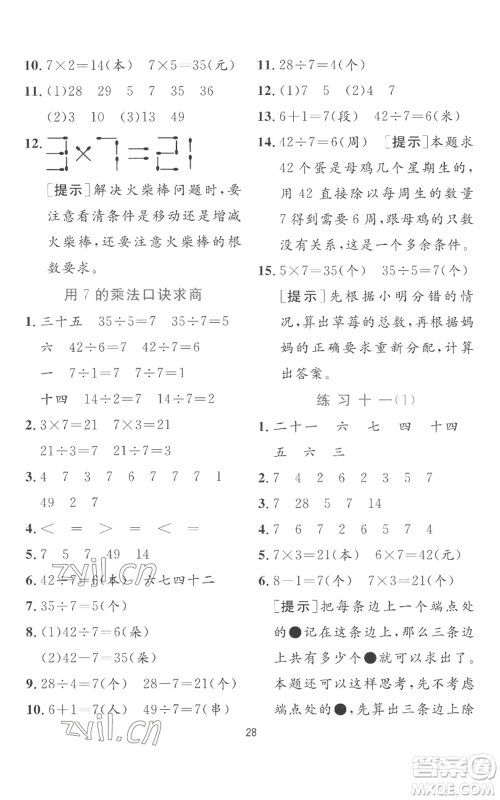 10. 7×2=14(本) 7×5=35(元)
11. (1)28 29 35 36
(2)3 10 (3)13 49
12. 3×7=21
[提示]解决火柴棒问题时,要
注意看清条件是移动还是增减
火柴棒,还要注意火柴棒的根
数要求。
用 7 的乘法口诀求商
1. 三十五 35÷5=7 35÷7=5
六 42÷6=7 42÷7=6
一 7÷1=7 7÷7=1
十四 14÷2=7 14÷7=2
2. 3×7=21 7×3=21
21÷3=7 21÷7=3
3. 4 7 3 7 7 7 1 7
49 2 7
4. < = > = < =
5. 7 5 7 49 14
6. 42÷7=6(本) 六七四十二
7. 35÷7=5(个)
8. (1)42÷7=6(朵)
(2)42-7=35(朵)
9. 28÷4=7(个) 28-7=21(个)
10. 6+1=7(个) 49÷7=7(串)
11. 28÷7=4(个)
12. (1)7 5 (2)4 7
13. 6+1=7(段) 42÷7=6(米)
14. 42÷7=6(周) [提示]本题求
42 个蛋是母鸡几个星期生的,
用 42 直接除以每周生的数量
7 得到 6 周,跟母鸡的只数
没有关系,是一个多余条件。
15. 5×7=35(个) 35÷7=5(个)
[提示]先根据小明分错的情
况,算出草莓的总数,再根据妈
妈的要求重新分配,计算
出答案。
练习十一(1)
1. 二十一 六 七 四 十四
五 六 三
2. 7 4 2 6 2 3 5 7
3. 7 28 5 7 14
4. > < = > < =
5. 7×3=21(本) 6×7=42(元)
6. 8-1=7(个) 7×3=21(个)
[提示]把每条边上一个端点处
的●记在这条边上,那么三条边
上共有多少个●就可以求出来。
本题还可以这样思考,先不算端
点处的●,先算出三条边上除
28
zyjl.cn
zyjl.cn
答案圈
MXQE.COM